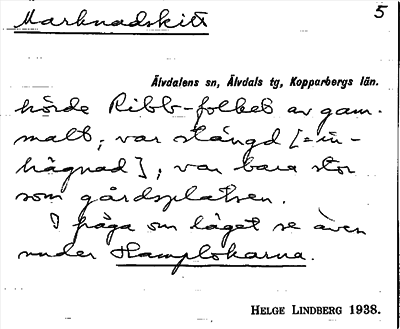 Marknadskitt
5
Älvdalens sn, Älvdals tg, Kopparbergs län.
hörde Ribb-folket av gam-
malt; var stängd [=in-
hägnad]; var bara stor
som gårdsplatsen.
I fråga om läget se även
under Hamplökarna.
HELGE LINDBERG 1938.